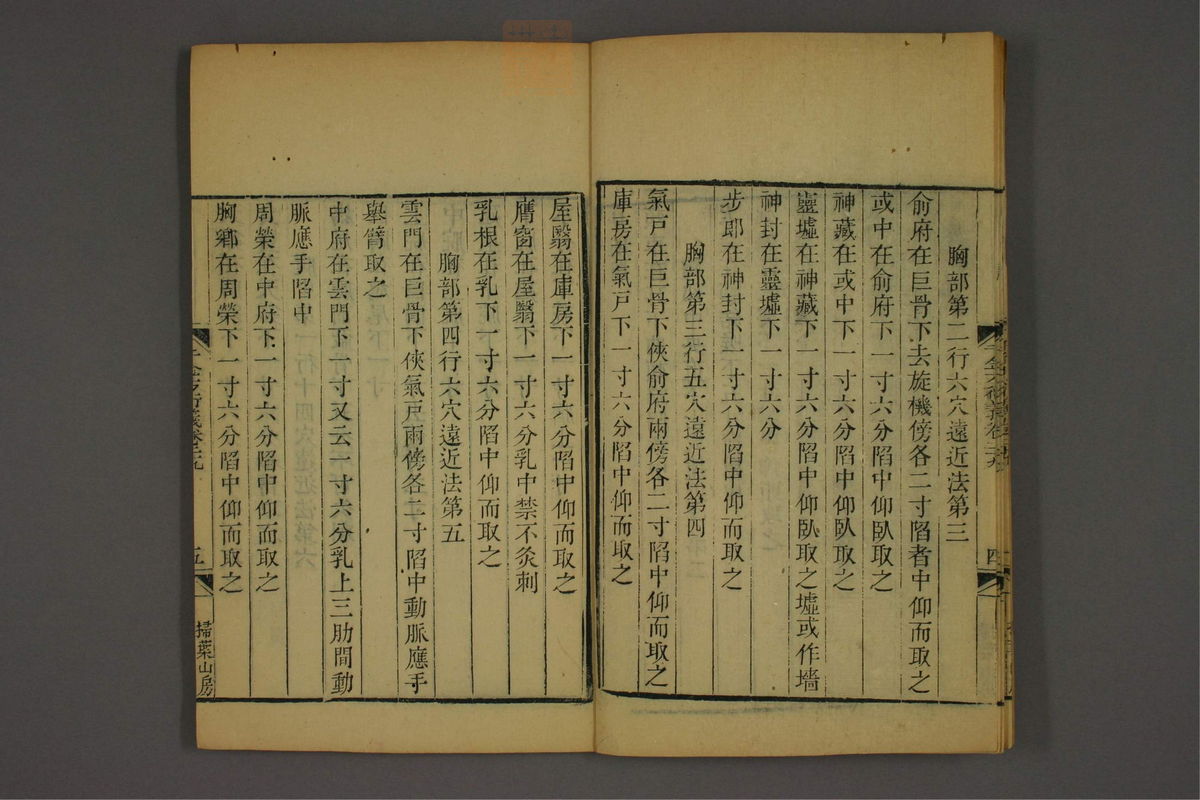 胸部第二行六穴遠近法第三
俞府在巨骨下去旋機傍各二寸陷者中仰而取之
或中在俞府下一寸六分陷中仰臥取之
神藏在或中下一寸六分陷中仰臥取之
靈墟在神藏下一寸六分陷中仰臥取之墟或作墻
神封在靈墟下一寸六分
步郎在神封下一寸六分陷中仰而取之
胸部第三行五穴遠近法第四
氣戸在巨骨下俠俞府兩傍各二寸陷中仰而取之
庫房在氣戸下一寸六分陷中仰而取之
四
屋翳在庫房下一寸六分陷中仰而取之
膺窗在屋翳下一寸六分乳中禁不灸刺
乳根在乳下一寸六分陷中仰而取之
胸部第四行六穴遠近法第五
雲門在巨骨下俠氣戸兩傍各二寸陷中動脈應手
舉臂取之
中府在雲門下一寸又云一寸六分乳上三肋間動
脈應手陷中
周榮在中府下一寸六分陷中仰而取之
胸鄉在周榮下一寸六分陷中仰而取之
千金方衍義卷二十九
五
掃葉山房